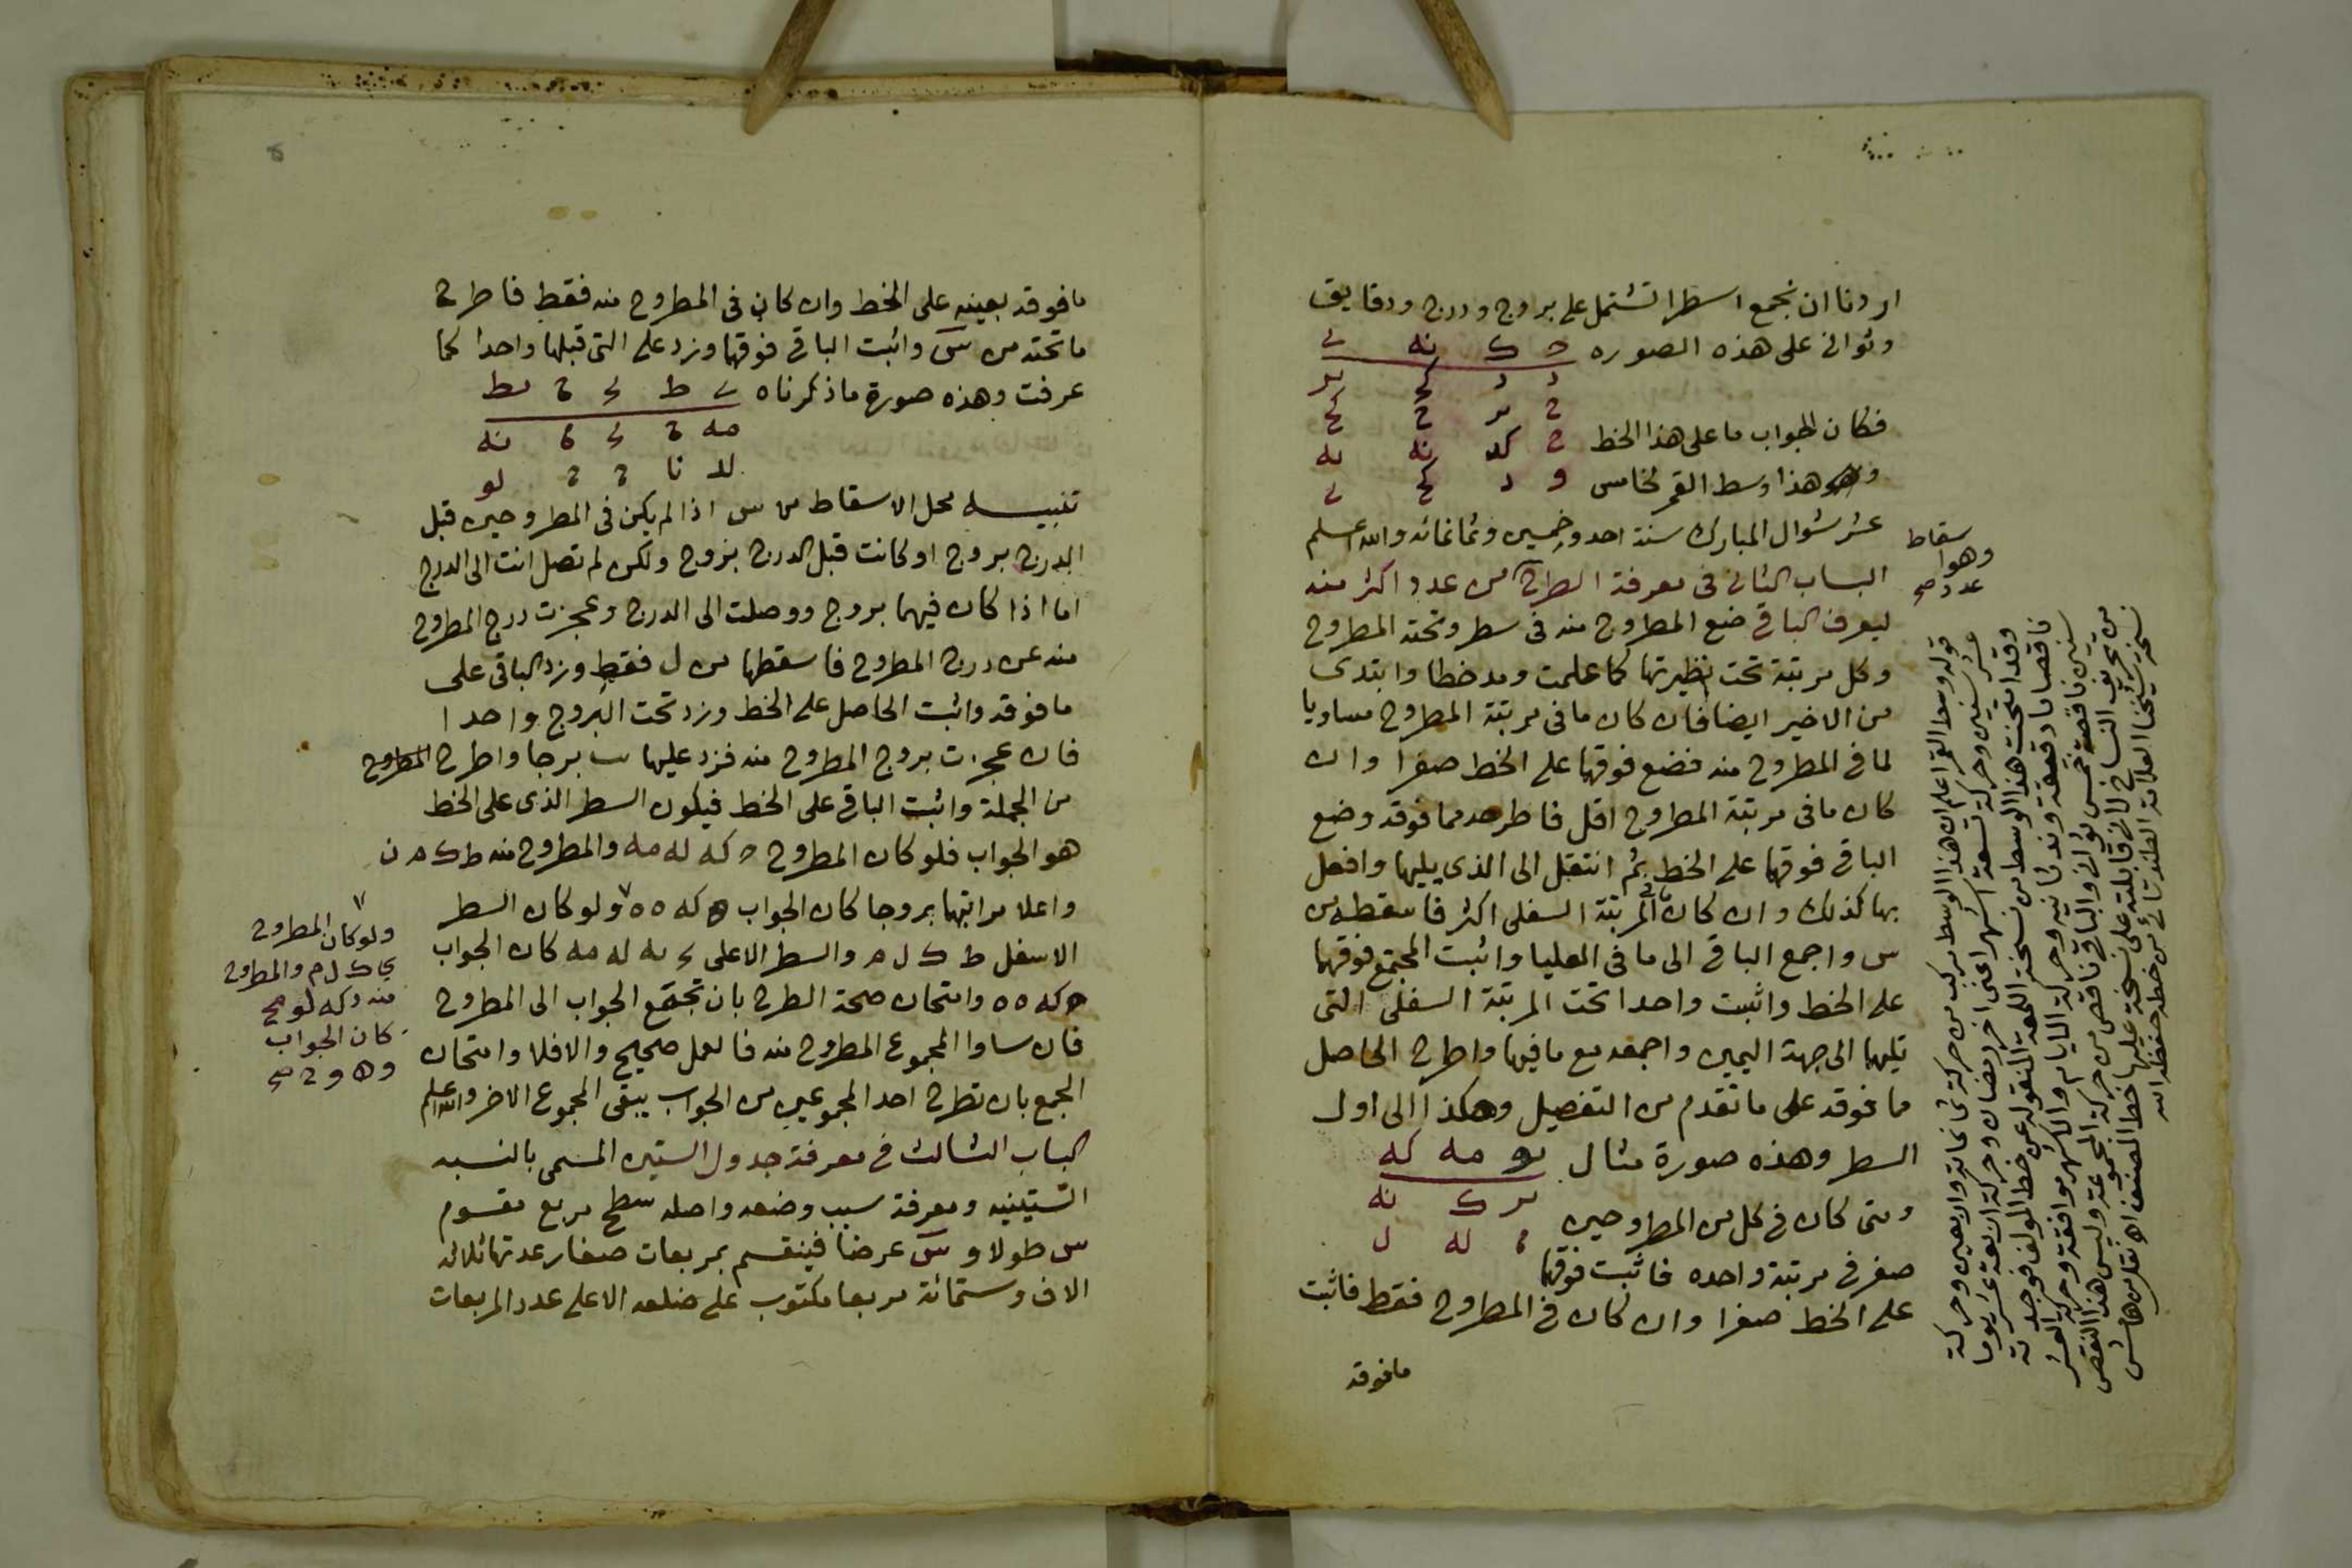 اردنا ان نجمع اسطرا تشتمل على بروج ودرج ودقايق
وثوانى على هذه الصوره
فكان الجواب ما على هذا الخط
وهو هذا وسط القمر لخامس
عشر شوال المبارك سنة احد وخمسين وثمانمائه والله اعلم
الباب الثانى فى معرفة الطرح من عدد اكثر منه
ليعرف الباقى ضع المطروح منه فى سطر وتحته المطروح
وكل مرتبة تحت نظيرتها كما علمت ومد خطا وابتدى
من الاخير ايضا فان كان ما فى مرتبة المطروح مساويا
لما فى المطروح منه فضع فوقها على الخط صفرا وان
كان ما فى مرتبة المطروح اقل فاطرحه مما فوقه وضع
الباقى فوقها على الخط ثم انتقل الى الذى يليها وافعل
بها كذلك وان كان ما فى المرتبة السفلى اكثر فاسقطه من
س واجمع الباقى الى ما فى العليا واثبت المجتمع فوقها
على الخط واثبت واحدا تحت المرتبة السفلى التى
تليها الى جهة اليمين واجمعه مع ما فيها واطرح الحاصل
مما فوقه على ما تقدم من التفصيل وهكذا الى اول
السطر وهذه صورة مثال
ومتى كان فى كل من المطروحين
صفر فى مرتبة واحده فاثبت فوقها
على الخط صفرا وان كان فى المطروح فقط فاثبت
مافوقه
اسقاط
وهو
عدد صح
قوله وسط القمر اعلم ان هذا الوسط مركب من حركة ثمانمائة واربعين وحركة
عشر سنين وحركة تسعة اشهر اعنى اخر رمضان وحركة اربعة عشر يوما
وقد امتحنت هذا الوسط من نسخة اللمعة المنقوله عن خط المولف فوجدته
ناقصا دقيقة و ثانيه وحركة الايام والاشهر موافقة وحركة العشر
سنين ناقصة خمس ثوان والباقى ناقص من حركة المجموعة وليس هذا النقص
من تحريف النساخ لانى قابلته على نسخة عليها خط المصنف اه نقل من هامش
نسخة شيخنا العلامة من خطه حفظه الله
ما فوقه بعينه على الخط وان كان فى المطروح منه فقط فاطرح
ما تحته من س واثبت الباقى فوقها وزد على التى قبلها واحدا كما
عرفت وهذه صورة ما ذكرناه
تنبيه محل الاسقاط من س اذا لم يكن فى المطروحين قبل
الدرج بروج او كانت قبل الدرج بروج ولكن لم تصل انت الى الدرج
اما اذا كان فيهما بروج ووصلت الى الدرج وعجزت درج المطروح
منه عن درج المطروح فاسقطها من ل فقط وزد الباقى على
ما فوقه واثبت الحاصل على الخط وزد تحت البروج واحدا
فان عجزت بروج المطروح منه فزد عليها يب برجا واطرح المطروح
من الجملة واثبت الباقى على الخط فيكون السطر الذى على الخط
هو الجواب فلو كان المطروح ح كه له مه والمطروح منه ط ك م ن
واعلا مراتبها بروجا كان الجواب ه كه ه ه ولو كان السطر
الاسفل ط ك ل م والسطر الاعلى ى يه له مه كان الجواب
ح كه ه ه وامتحان صحة الطرح بان تجمع الجواب الى المطروح
فان ساوا المجموع المطروح منه فالعمل صحيح والا فلا وامتحان
الجمع بان تطرح احد المجموعين من الجواب يبقى المجموع الاخر والله اعلم
الباب الثالث فى معرفة جدول الستين المسمى بالنسبه
الستينيه ومعرفة سبب وضعه واصله سطح مربع مقسوم
س طولا و س عرضا فينقسم بمربعات صغار عدتها ثلاثه
الاف وستمائة مربعا مكتوب على ضلعه الاعلى عدد المربعات
ولو كان المطروح
ى ك ل م والمطروح
منه د كه لو مح
كان الجواب
و ه و ح صح